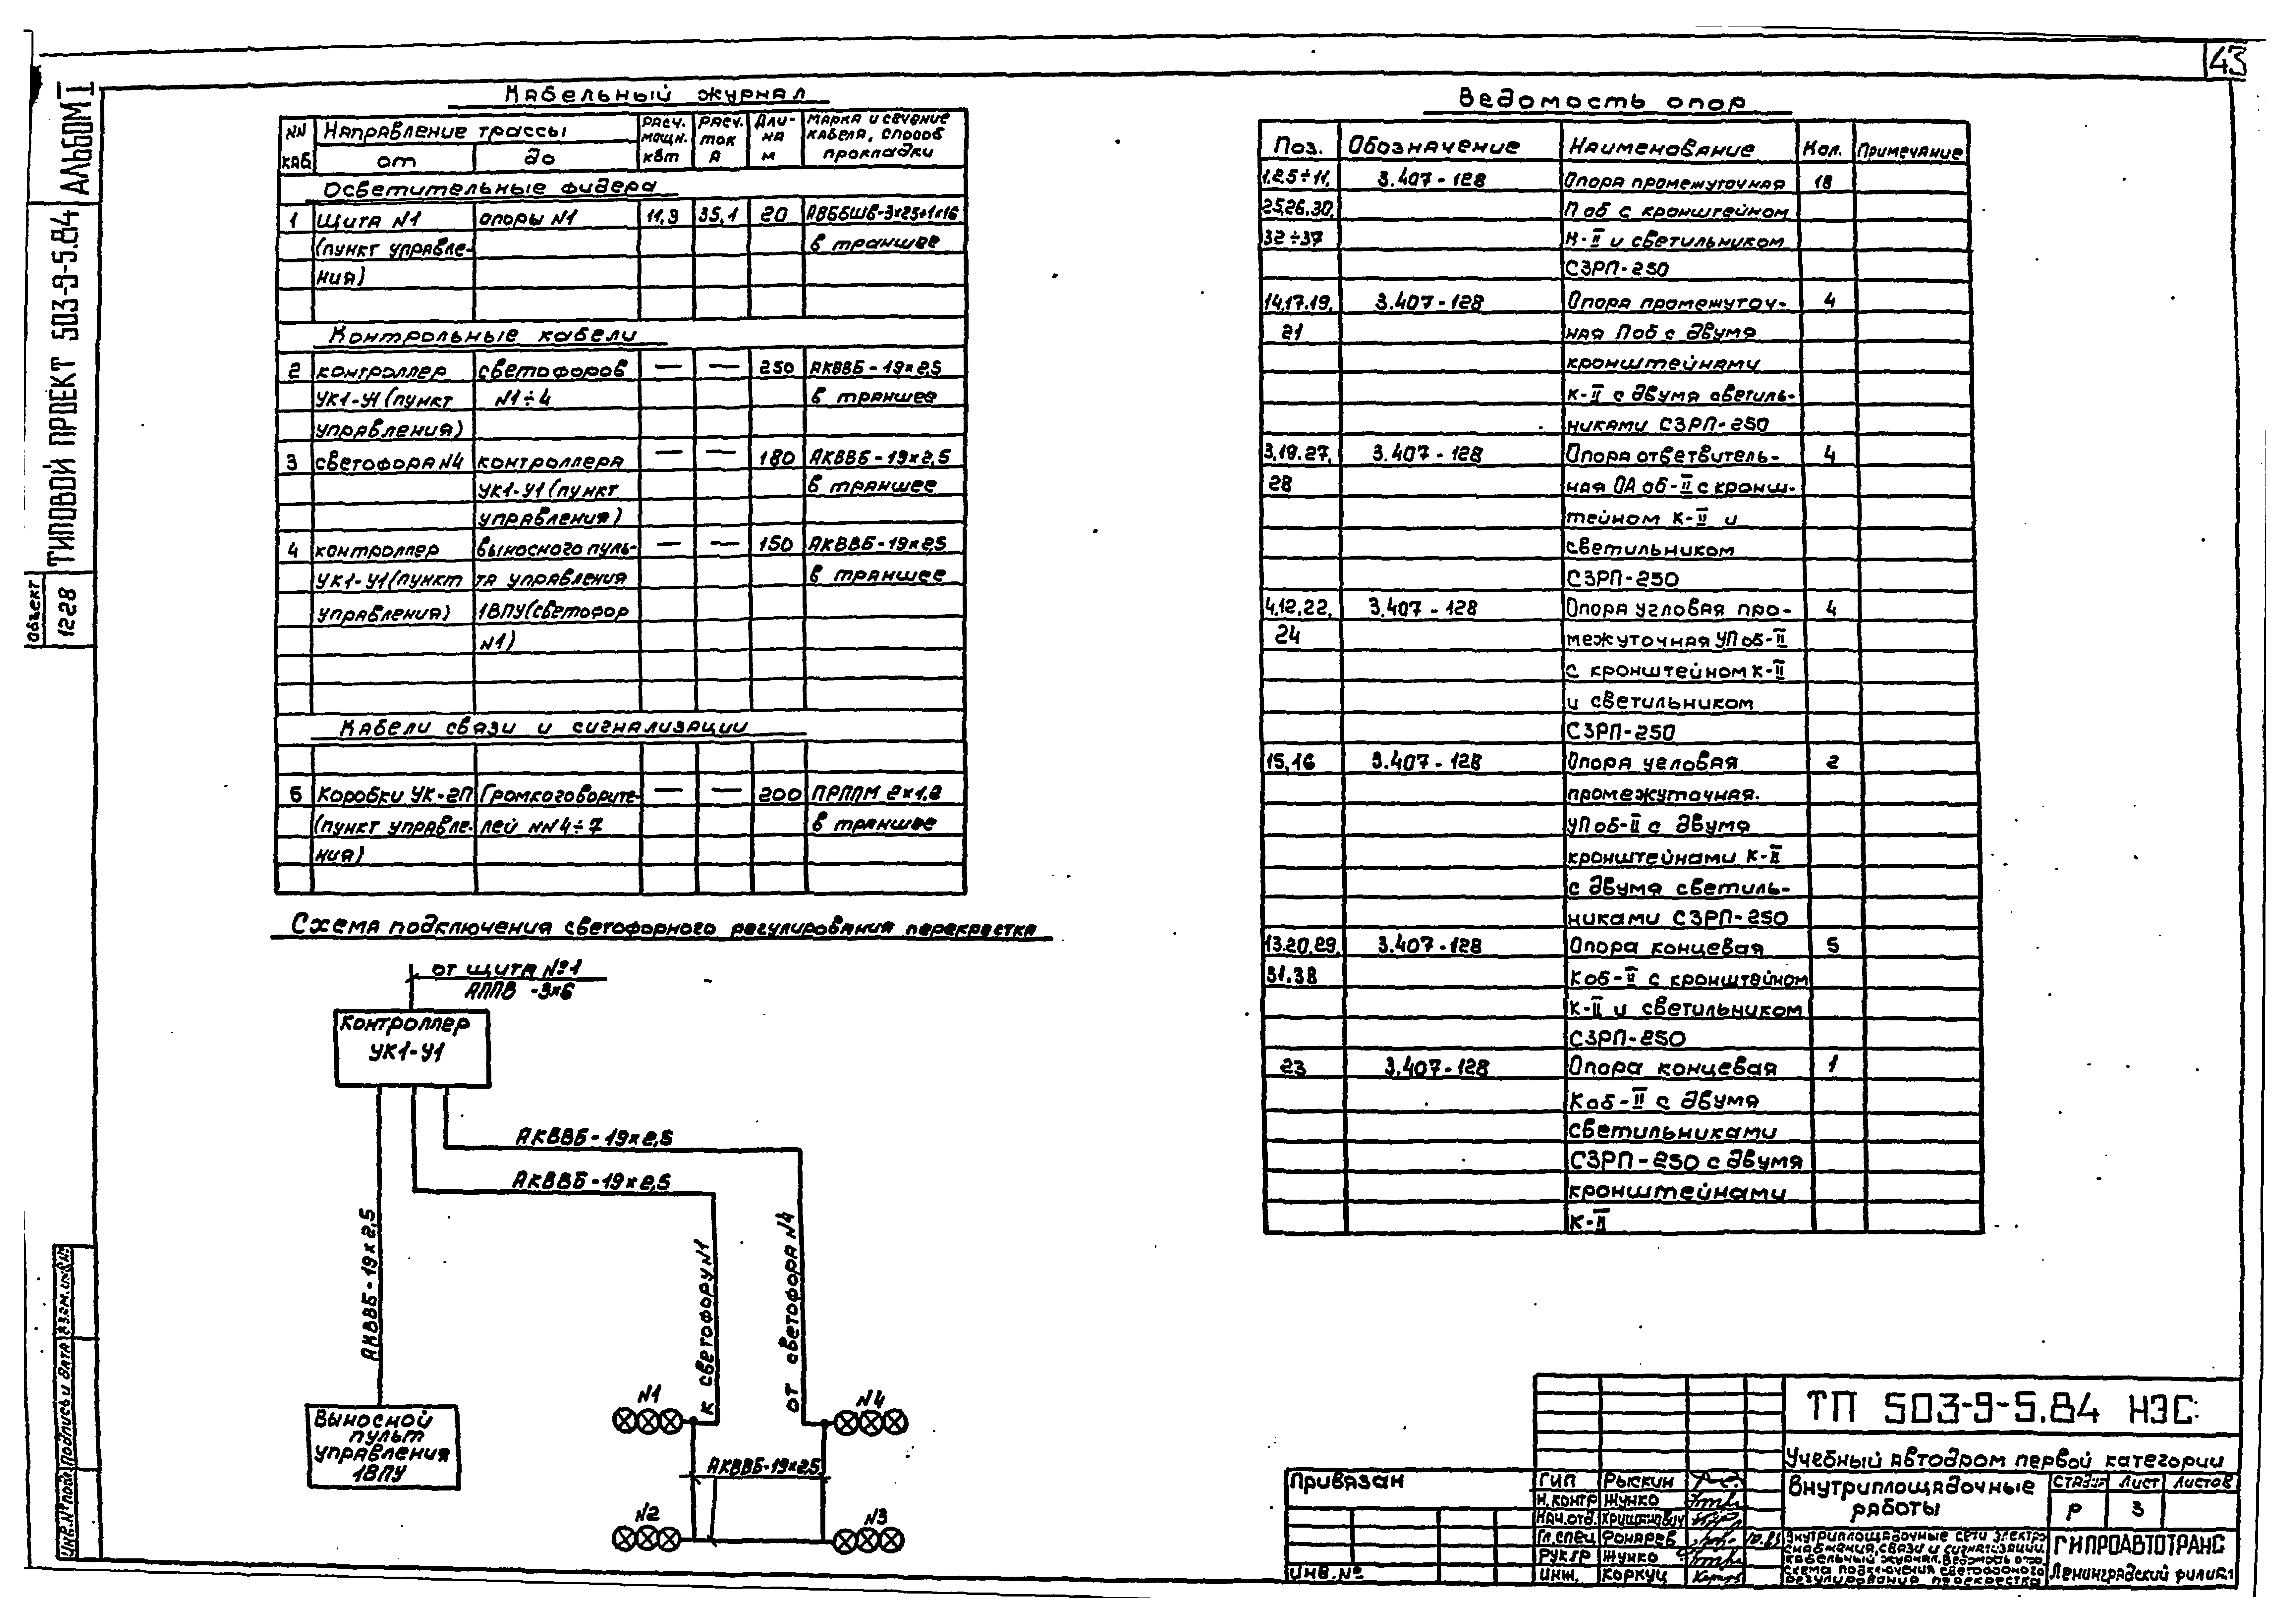 43
АЛЬБОМ I
ТИПОВОЙ ПРОЕКТ 503-9-5.84
Объект
1228
Кабельный журнал
NN каб
Направление трассы
от
до
Расч. мощн. квт
Расч. ток А
Дли-на м
Марка и сечение кабеля, способ прокладки
Осветительные фидера
1 Щита N1 опоры N1 11,9 35,1 20 АВББШв-3×25+1×16
(пункт управле- в траншее
ния)
Контрольные кабели
2 контроллер светофоров — — 250 АКВВБ-19×2,5
УК1-У1 (пункт N1÷4 в траншее
управления)
3 светофора N4 контроллера — — 180 АКВВБ-19×2,5
УК1-У1 (пункт в траншее
управления)
4 контроллер выносного пуль- — — 150 АКВВБ-19×2,5
УК1-У1 (пункт та управления в траншее
управления) 1ВПУ (светофор
N1)
Кабели связи и сигнализации
5 Коробки УК-2П Громкоговорите- — — 200 ПРППМ 2×1,2
(пункт управле- лей NN4÷7 в траншее
ния)
Схема подключения светофорного регулирования перекрестка
от щита №1
АППВ -3×6
Контроллер
УК1-У1
АКВВБ-19×2,5
АКВВБ-19×2,5
АКВВБ-19×2,5
к светофору N1
от светофора N4
Выносной
пульт
управления
1ВПУ
N1
N4
АКВВБ-19×2,5
N2
N3
Ведомость опор
Поз. Обозначение Наименование Кол. Примечание
1,2,5÷11, 3.407-128 Опора промежуточная 18
25,26,30, Поб с кронштейном
32÷37 К-II и светильником
СЗРП-250
14,17,19, 3.407-128 Опора промежуточ- 4
21 ная Поб с двумя
кронштейнами
К-II с двумя светиль-
никами СЗРП-250
3,18,27, 3.407-128 Опора ответвитель- 4
28 ная ОАоб-II с кронш-
тейном К-II и
светильником
СЗРП-250
4,12,22, 3.407-128 Опора угловая про- 4
24 межуточная УПоб-II
с кронштейном К-II
и светильником
СЗРП-250
15,16 3.407-128 Опора угловая 2
промежуточная.
УПоб-II с двумя
кронштейнами К-II
с двумя светиль-
никами СЗРП-250
13,20,29, 3.407-128 Опора концевая 5
31,38 Коб-II с кронштейном
К-II и светильником
СЗРП-250
23 3.407-128 Опора концевая 1
Коб-II с двумя
светильниками
СЗРП-250 с двумя
кронштейнами
К-II
Взам. инв. №
Подпись и дата
Инв. № подл.
Привязан
Инв. №
ГИП Рыскин
Н.контр Жунко
Нач.отд.
Гл.спец Фонарев
Рук.гр Жунко
Инж. Коркуц
ТП 503-9-5.84 НЭС
Учебный автодром первой категории
Внутриплощадочные
работы
Стадия Лист Листов
Р 3
Внутриплощадочные сети электро-
снабжения, связи и сигнализации.
Кабельный журнал. Ведомость опор.
Схема подключения светофорного
регулирования перекрестка
ГИПРОАВТОТРАНС
Ленинградский филиал